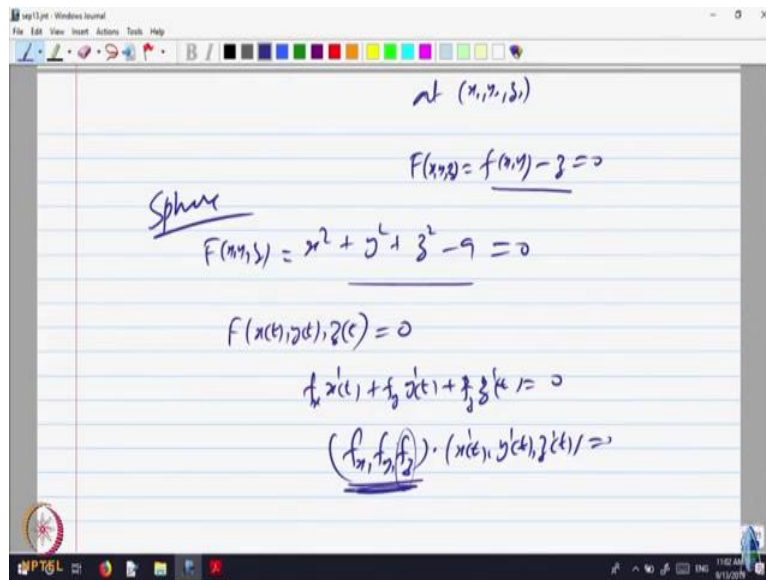 sep13.jnt - Windows Journal
File Edit View Insert Actions Tools Help
at (x₁, y₁, z₁)
F(x,y,z) = f(x,y) - z = 0
Sphere
F(x,y,z) = x² + y² + z² - 9 = 0
F(x(t), y(t), z(t)) = 0
fₓ x'(t) + f_y y'(t) + f_z z'(t) = 0
(fₓ, f_y, f_z) · (x'(t), y'(t), z'(t)) =
NPTEL
ENG
11:02 AM
9/13/2019